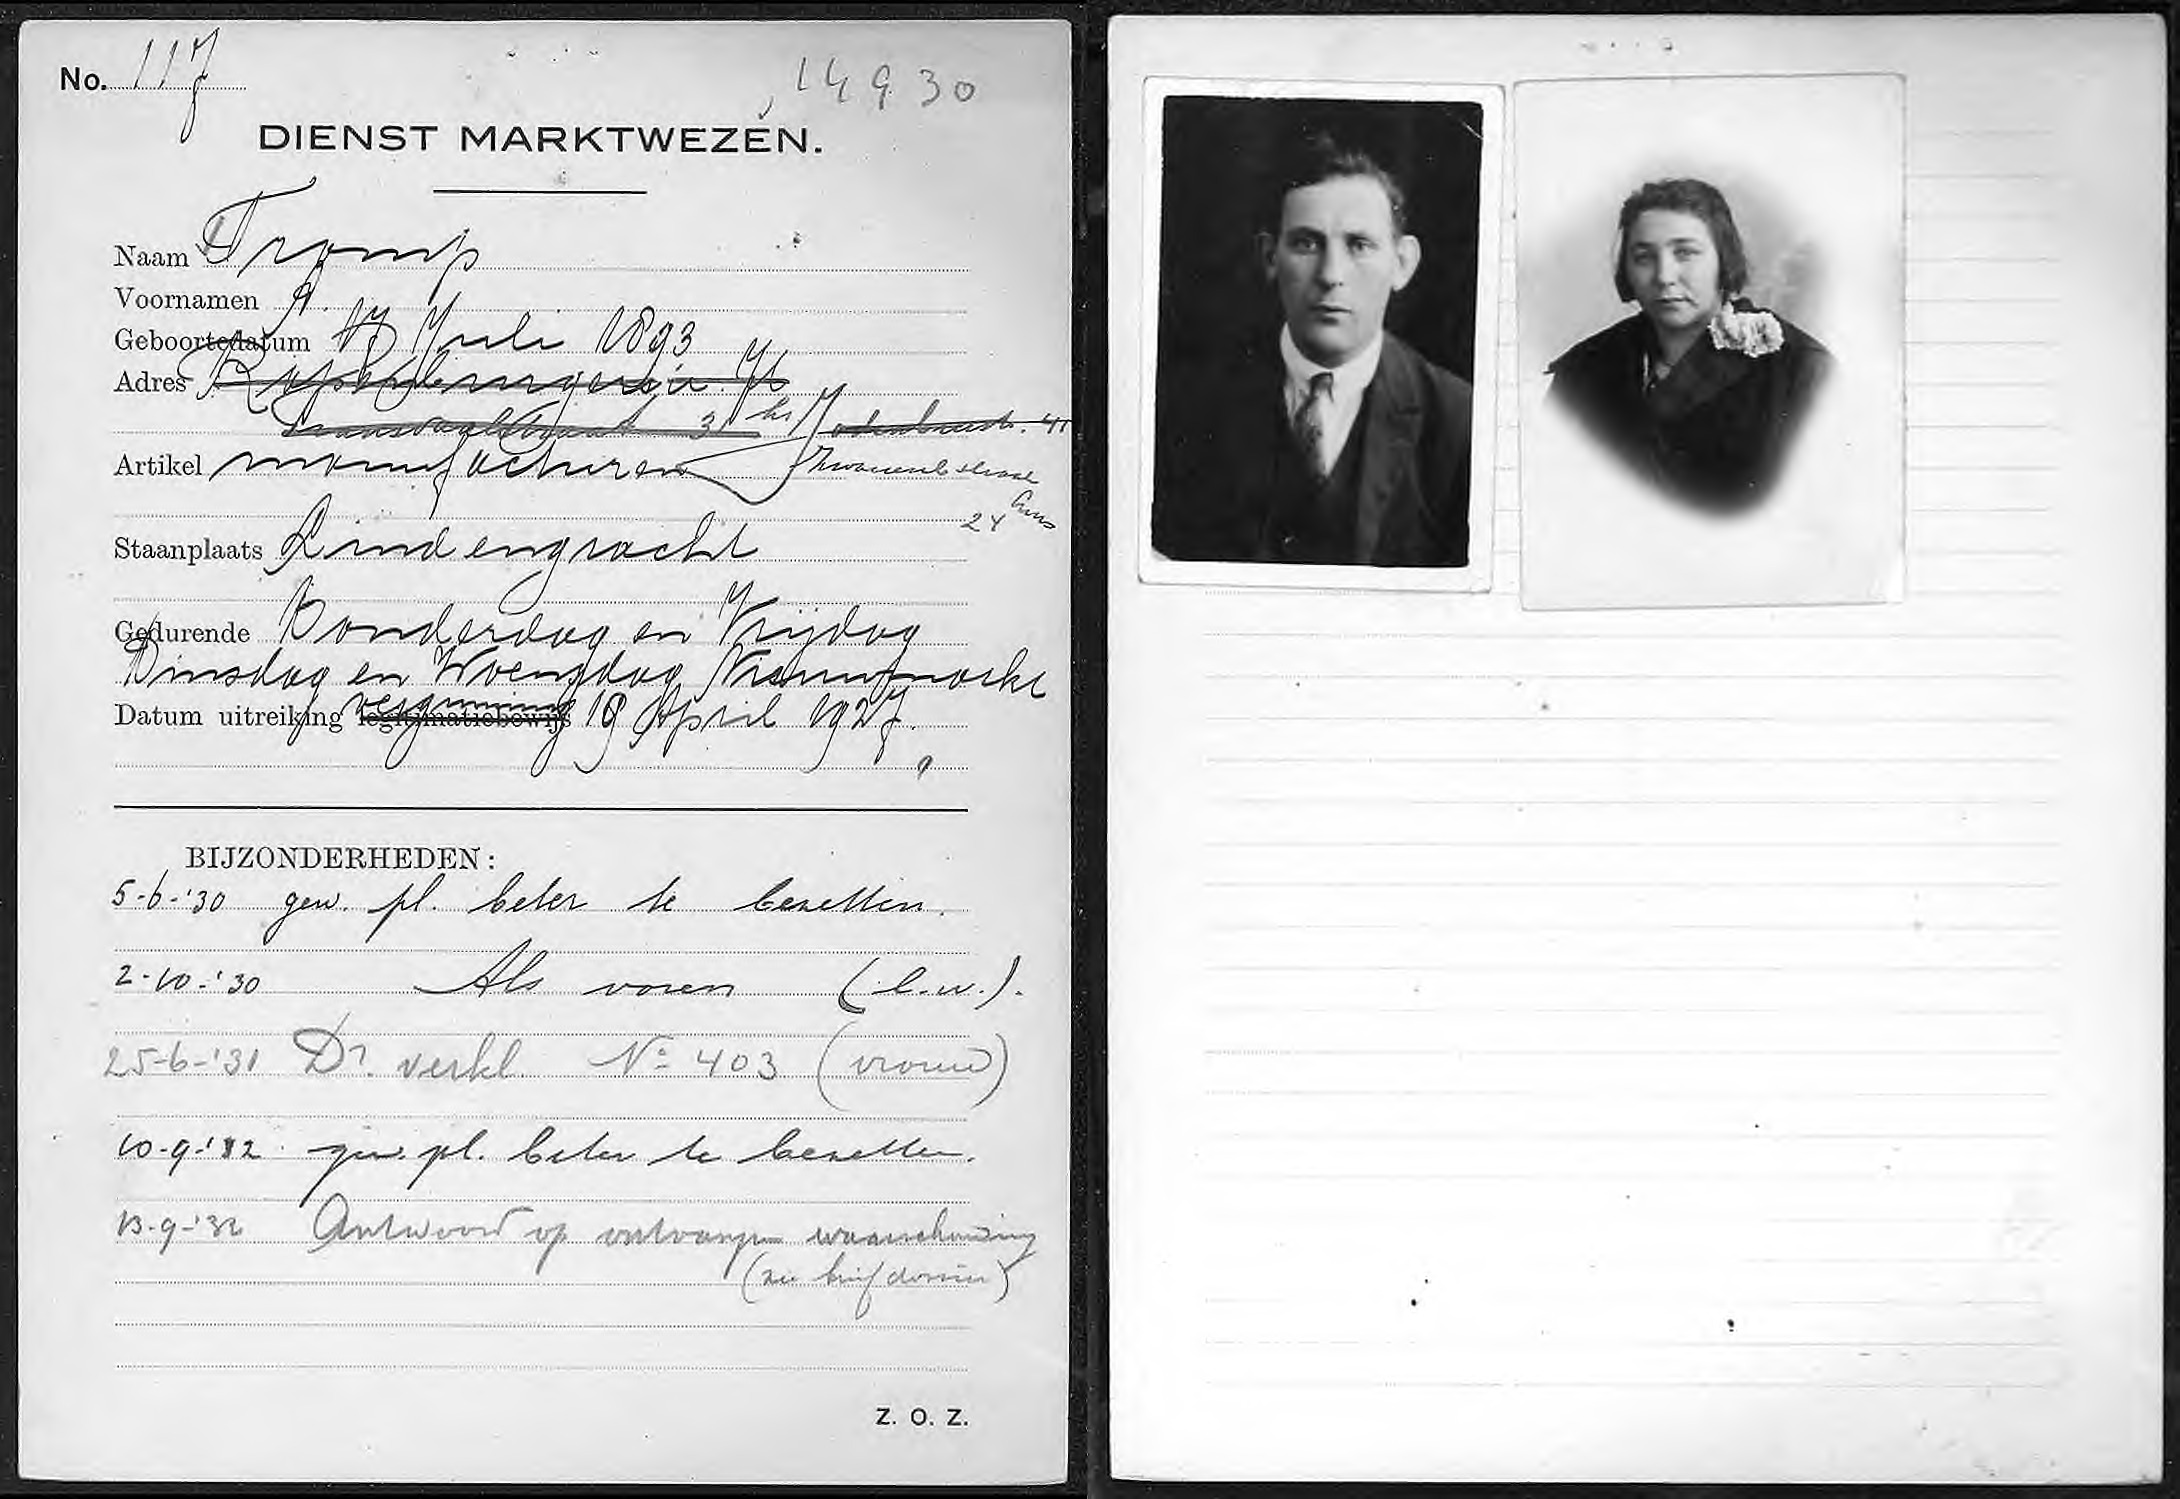 No. 117
14930
DIENST MARKTWEZEN.
Naam Tromp
Voornamen A.
Geboortedatum 17 Juli 1893
Adres Rijpenburgerstr. 76
Transvaalstraat 3 hs Jodenbreestr. 41
Artikel manufacturen Zwanenb.straat
24 huis
Staanplaats Lindengracht
Gedurende Donderdag en Vrijdag
Dinsdag en Woensdag Nieuwmarkt
Datum uitreiking legitimatiebewijs vergunning 19 April 1927.
BIJZONDERHEDEN:
5-6-'30 gew. pl. beter te bezetten.
2-10-'30 Als voren (l.w.).
25-6-'31 Dr. verkl. No 403 (vrouw)
10-9-'32 gew. pl. beter te bezetten.
13-9-'32 Antwoord op ontvangen waarschuwing
(zie brief dossier)
Z. O. Z.